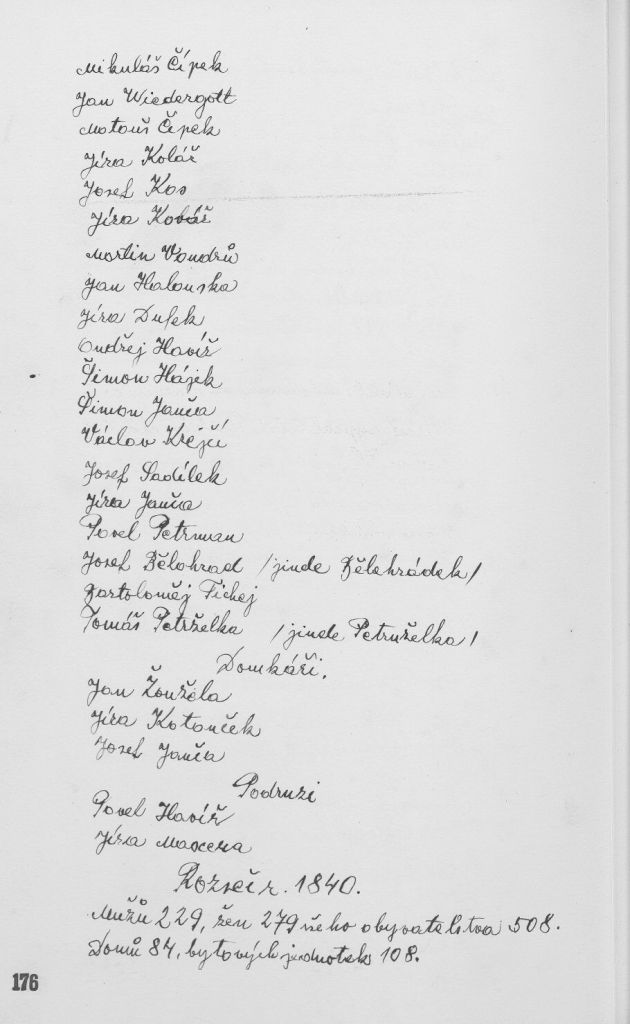 Mikuláš Čípek
Jan Wiedergott
Matouš Čípek
Jíra Kolář
Josef Kos
Jíra Kolář
Martin Vondrů
Jan Halouska
Jíra Dufek
Ondřej Havíř
Šimon Hájek
Šimon Janča
Václav Krejčí
Josef Sadílek
Jíra Janča
Pavel Petrman
Josef Bělohrad /jinde Bělehrádek/
Bartoloměj Tichej
Tomáš Petrželka /jinde Petruželka/
Domkáři.
Jan Žoužela
Jíra Kotouček
Josef Janča
Podruzi
Pavel Havíř
Jíra Macera
Rozseč r. 1840.
Mužů 229, žen 279 všeho obyvatelstva 508.
Domů 84, bytových jednotek 108.
176